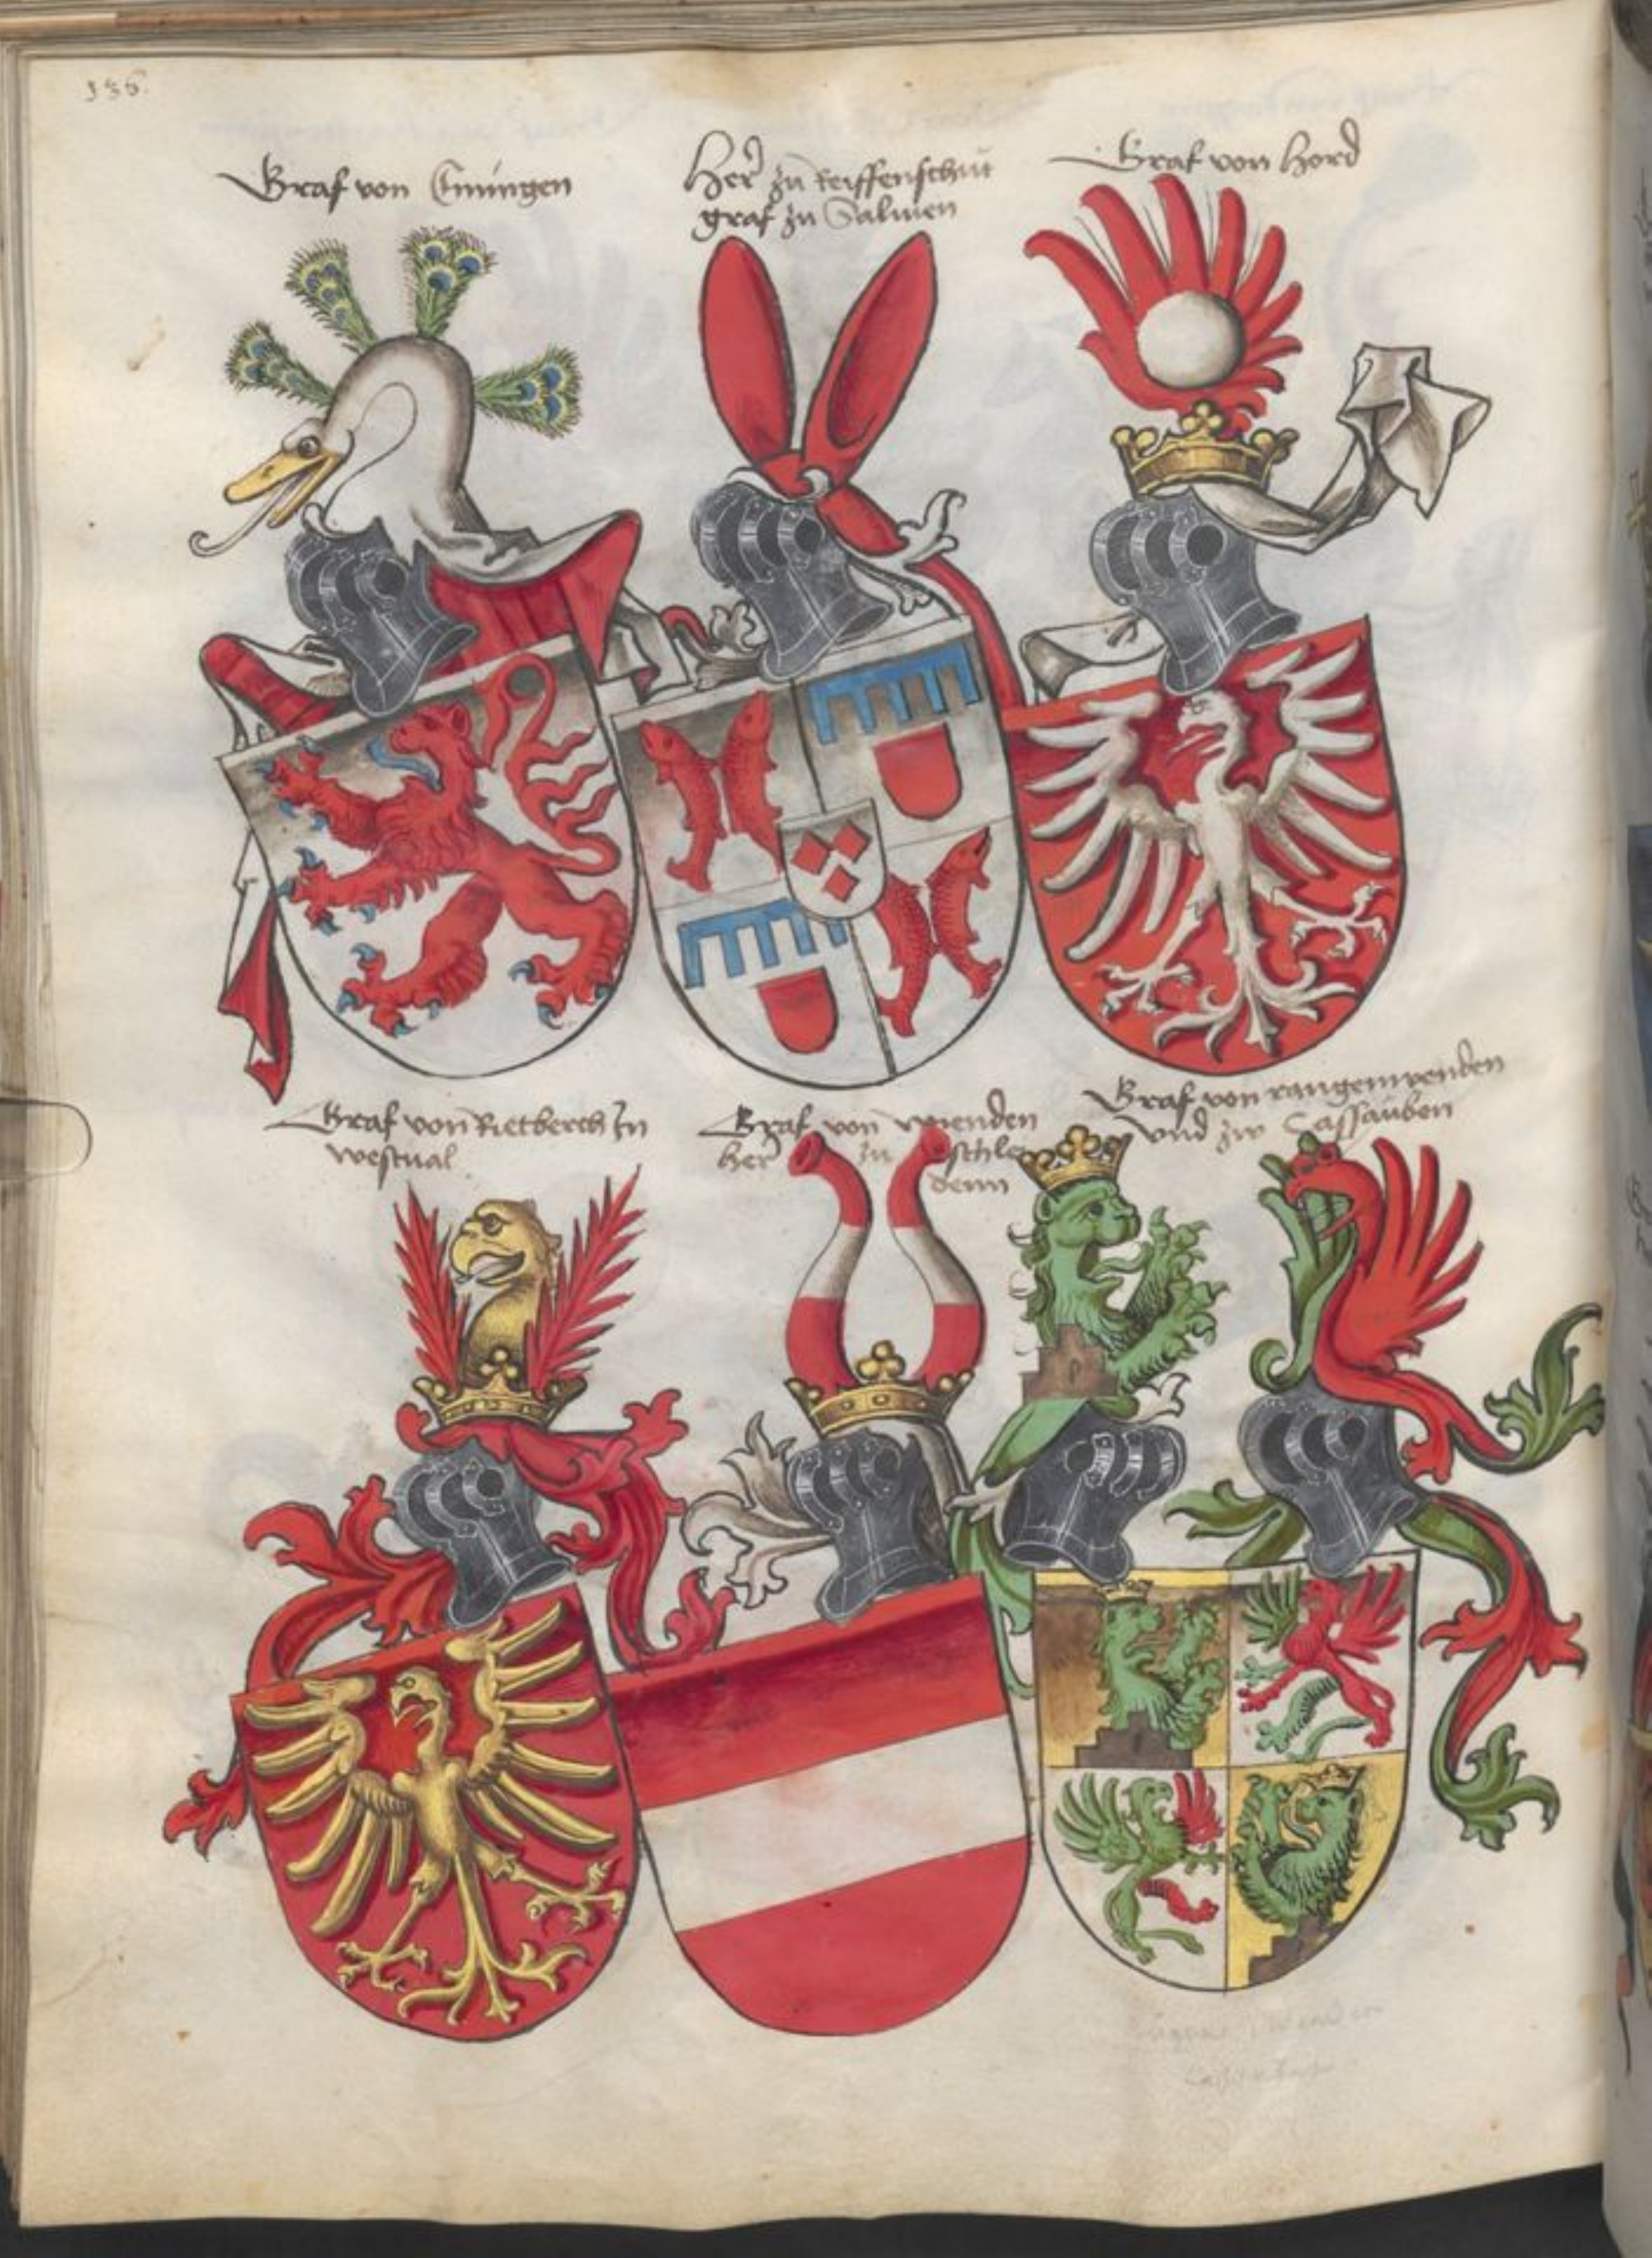 136.
Graf von
Her zu Reiffenschūt
graf zu Salmen
Graf von Hord
Graf von Rietberch In
westual
Graf von vnienden
her zu schle
denn
Graf von rangenwenden
vnd zw Cassauben